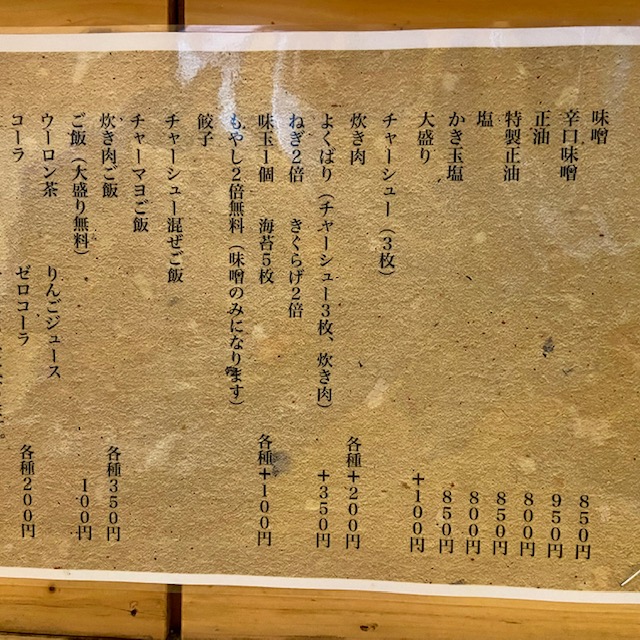 味噌 850円
辛口味噌 950円
正油 800円
特製正油 850円
塩 800円
かき玉塩 850円
大盛り +100円
チャーシュー（3枚）
炊き肉 各種+200円
よくばり（チャーシュー3枚、炊き肉） +350円
ねぎ2倍 きくらげ2倍
味玉1個 海苔5枚 各種+100円
もやし2倍無料（味噌のみになります）
餃子
チャーシュー混ぜご飯
チャーマヨご飯
炊き肉ご飯 各種350円
ご飯（大盛り無料） 100円
ウーロン茶 りんごジュース
コーラ ゼロコーラ 各種200円